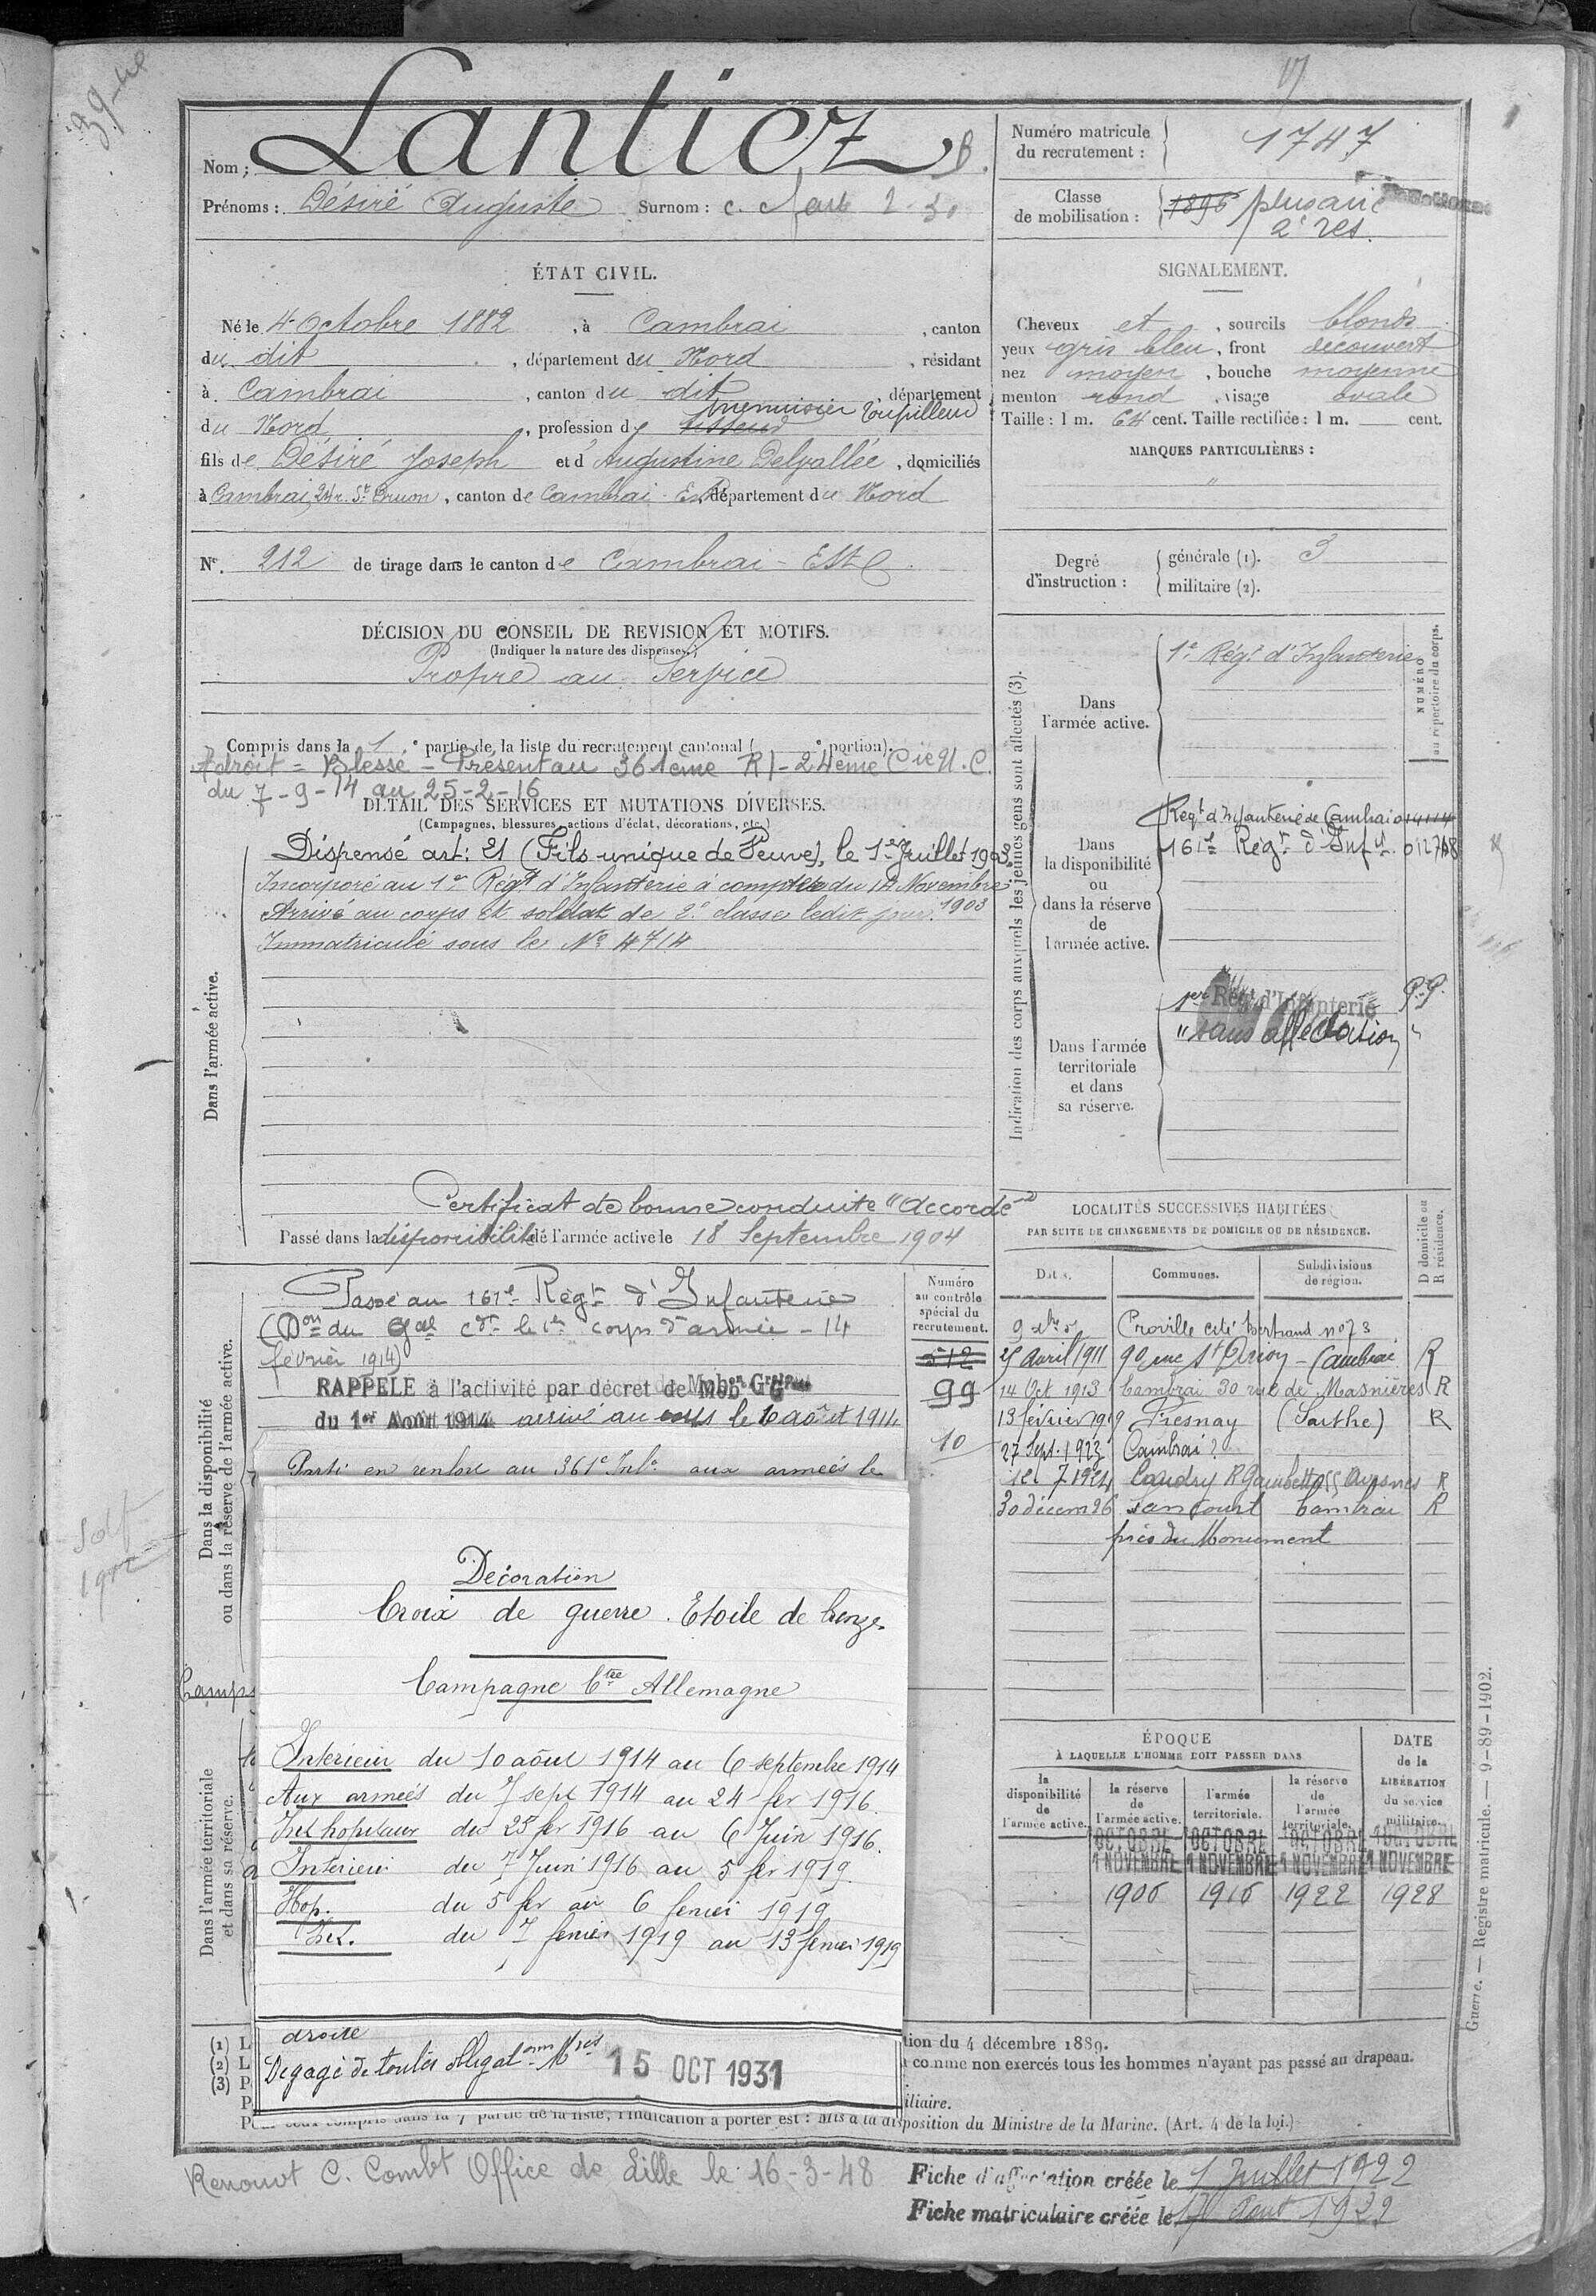 39
Nom : Lantiez B.
Prénoms : Désiré Auguste Surnom : c.
Numéro matricule du recrutement : 1747
Classe de mobilisation : 1896 plus anc
2e res.
ÉTAT CIVIL.
Né le 4 Octobre 1882, à Cambrai, canton
du dit, département du Nord, résidant
à Cambrai, canton du dit, département
menuisier Toupilleur
du Nord, profession de tisseur
fils de Désiré Joseph et d'Augustine Delvallée, domiciliés
à Cambrai, 24 r. St Druon, canton de Cambrai Est, département du Nord
No. 212 de tirage dans le canton de Cambrai - Est
SIGNALEMENT.
Cheveux et, sourcils blonds
yeux gris bleu, front découvert
nez moyen, bouche moyenne
menton rond, visage ovale
Taille : 1 m. 64 cent. Taille rectifiée : 1 m. cent.
MARQUES PARTICULIÈRES :
"
Degré d'instruction : générale (1). 3
militaire (2).
DÉCISION DU CONSEIL DE REVISION ET MOTIFS.
(Indiquer la nature des dispenses.)
Propre au Service
Compris dans la 1e partie de la liste du recrutement cantonal ( e portion).
droit = Blessé - Présent au 361ème RI - 24ème Cie U.C.
du 7-9-14 au 25-2-16
DÉTAIL DES SERVICES ET MUTATIONS DIVERSES.
(Campagnes, blessures, actions d'éclat, décorations, etc.)
Dans l'armée active.
Dispensé art: 21 (Fils unique de Veuve), le 1er Juillet 1903
Incorporé au 1er Régt d'Infanterie à compter du 14 Novembre
1903
Arrivé au corps et soldat de 2e classe ledit jour.
Immatriculé sous le No 4714
Certificat de bonne conduite "Accordé"
Passé dans la disponibilité de l'armée active le 18 Septembre 1904
Indication des corps auxquels les jeunes gens sont affectés (3).
NUMÉRO au répertoire du corps.
Dans l'armée active.
1er Régt d'Infanterie
Dans la disponibilité ou dans la réserve de l'armée active.
Régt d'Infanterie de Cambrai 014114
161e Régt d'Infie
Dans l'armée territoriale et dans sa réserve.
1er Régt d'Infanterie
"sans affectation "
Dans la disponibilité ou dans la réserve de l'armée active.
Numéro au contrôle spécial du recrutement.
512
99
10
Passé au 161e Régt d'Infanterie
(Don du Gal Cdt le 1er corps d'armée - 14
février 1914)
RAPPELÉ à l'activité par décret de Mobon Grale
du 1er Août 1914 arrivé au corps le 10 août 1914
Parti en renfort au 361e Infie aux armées le
LOCALITÉS SUCCESSIVES HABITÉES
PAR SUITE DE CHANGEMENTS DE DOMICILE OU DE RÉSIDENCE.
Dates. Communes. Subdivisions de région. D domicile ou R résidence.
Proville cité Bertrand no 73
25 Avril 1911 90 rue St Druon - Cambrai R
14 Oct 1913 Cambrai 30 rue de Masnières R
13 février 1919 Fresnay (Sarthe) R
27 Sept. 1923 Cambrai
7 1924 Caudry R Gambetta Avesnes R
30 décem 26 Sancourt Cambrai R
près du Monument
Solf
Camp
Décoration
Croix de guerre. Etoile de bronze
Campagne Ctre Allemagne
Intérieur du 10 août 1914 au 6 septembre 1914
Aux armées du 7 sept 1914 au 24 fer 1916.
Int hopitaux du 25 fer 1916 au 6 Juin 1916.
Intérieur du 7 Juin 1916 au 5 fer 1919.
Hop. du 5 fer au 6 fevrier 1919
Int. du 7 fevrier 1919 au 13 fevrier 1919
Dans l'armée territoriale et dans sa réserve.
ÉPOQUE
À LAQUELLE L'HOMME DOIT PASSER DANS
DATE de la LIBÉRATION du service militaire.
la disponibilité de l'armée active.
la réserve de l'armée active.
l'armée territoriale.
la réserve de l'armée territoriale.
OCTOBRE OCTOBRE OCTOBRE 1 OCTOBRE
1 NOVEMBRE 1 NOVEMBRE 1 NOVEMBRE 1 NOVEMBRE
1906 1916 1922 1928
droite
Dégagé de toutes obligatons Mres 15 OCT 1931
(1) L
(2) L
(3) P
tion du 4 décembre 1889.
comme non exercés tous les hommes n'ayant pas passé au drapeau.
iliaire.
Pour ceux compris dans la 7e partie de la liste, l'indication à porter est : Mis à la disposition du Ministre de la Marine. (Art. 4 de la loi.)
Guerre. — Registre matricule. — 9-89-1902.
Renouvt C. Combt Office de Lille le 16-3-48
Fiche d'affectation créée le 1 Juillet 1922
Fiche matriculaire créée le